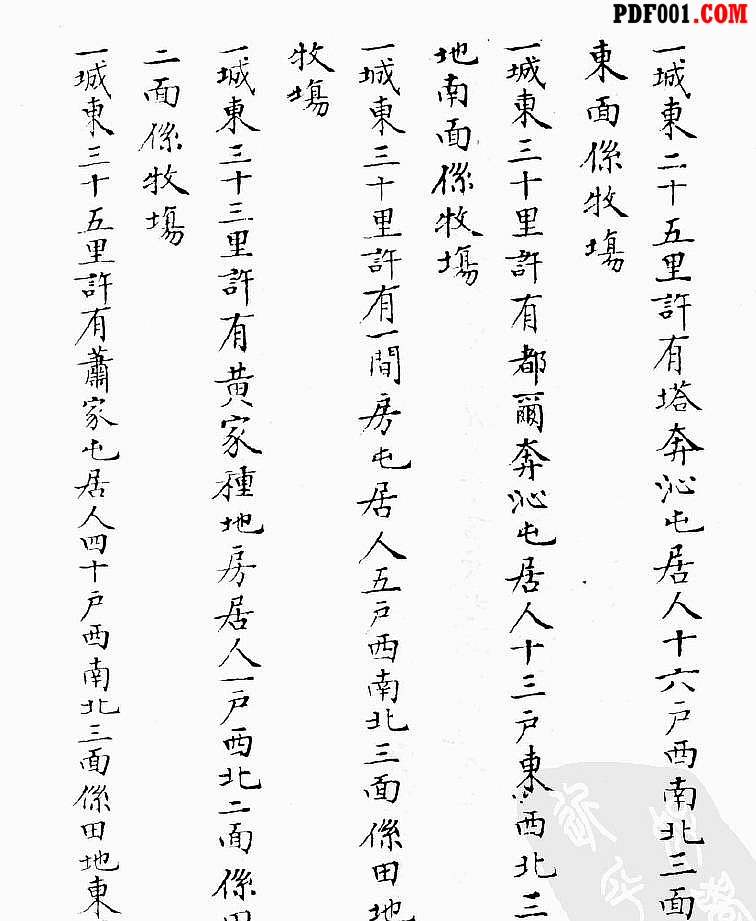 PDF001.COM
一城東二十五里許有塔奔沁屯居人十六户西南北三面
東面係牧塲
一城東三十里許有都爾奔沁屯居人十三户東西北三
地南面係牧塲
一城東三十里許有一間房屯居人五户西南北三面係田地
牧塲
一城東三十三里許有黄家種地房居人一户西北二面係田
二面係牧塲
一城東三十五里許有蕭家屯居人四十户西南北三面係田地東